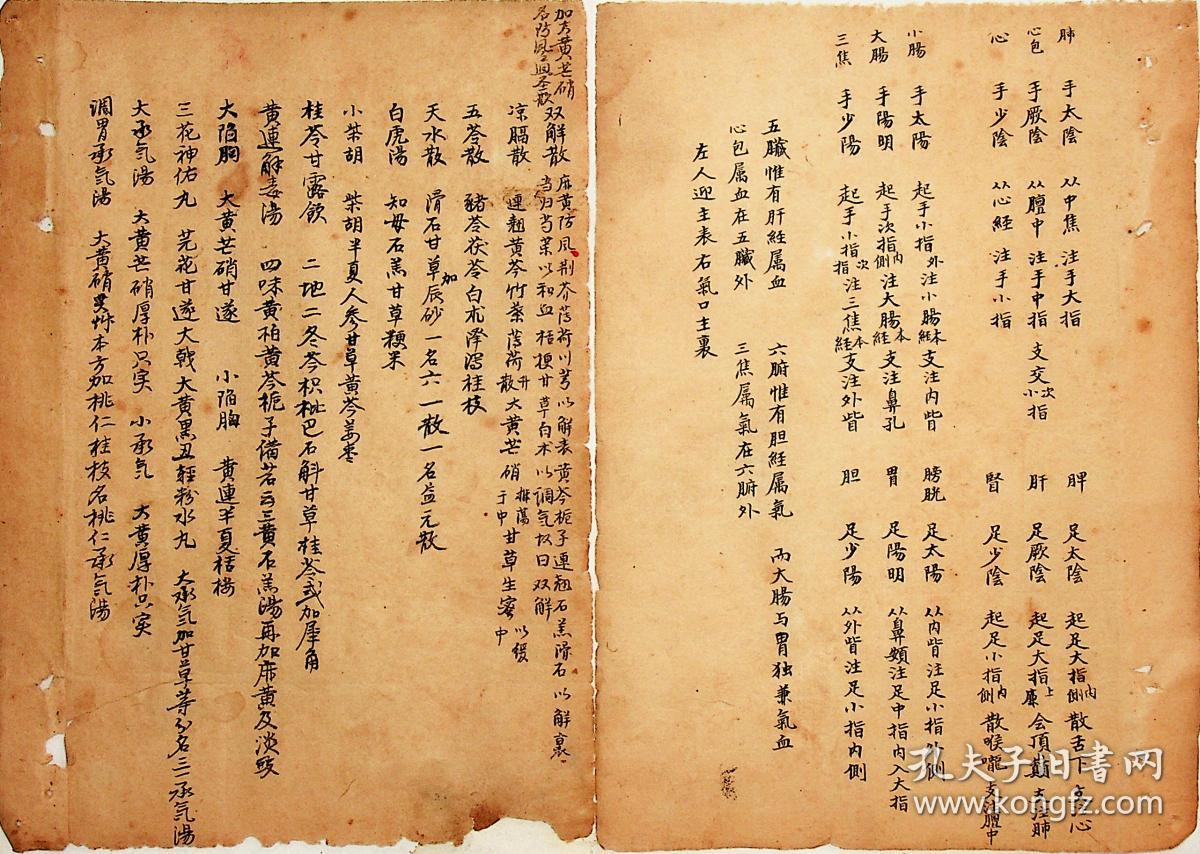 肺　手太陰　从中焦　注手大指　脾　足太陰　起足大指内側　散舌下　支注心
心包　手厥陰　从膻中　注手中指　支交小次指　肝　足厥陰　起足大指上廉　会頂巔　支注肺
心　手少陰　从心經　注手小指　腎　足少陰　起足小指内側　散喉嚨　支注膻中
小腸　手太陽　起手小指外　注小腸本經　支注内眥　膀胱　足太陽　从内眥注足小指外側
大腸　手陽明　起手次指内側　注大腸本經　支注鼻孔　胃　足陽明　从鼻頞注足中指内入大指
三焦　手少陽　起手小指次指　注三焦本經　支注外眥　胆　足少陽　从外眥注足小指内側
五臟惟有肝經属血　六腑惟有胆經属氣　而大腸与胃独兼氣血
心包属血在五臟外　三焦属氣在六腑外
左人迎主表右氣口主裏
加大黄芒硝
名防风通圣散
双解散　麻黄防风荆芥薄荷川芎以解表黄芩栀子連翘石羔滑石以解裏
当归芍藥以和血桔梗甘草白术以調气故曰双解
凉膈散　連翘黄芩竹葉薄荷升散大黄芒硝推蕩于中甘草生蜜以緩中
五苓散　豬苓茯苓白朮泽瀉桂枝
天水散　滑石甘草加辰砂一名六一散一名益元散
白虎湯　知母石羔甘草粳米
小柴胡　柴胡半夏人参甘草黄芩姜枣
桂苓甘露飲　二地二冬芩枳枇巴石斛甘草桂苓或加犀角
黄連解毒湯　四味黄柏黄芩栀子備若云三黄石羔湯再加麻黄及淡豉
大陷胸　大黄芒硝甘遂　小陷胸　黄連半夏栝楼
三花神佑丸　芫花甘遂大戟大黄黑丑輕粉水丸　大承气加甘草等分名三一承气湯
大承气湯　大黄芒硝厚朴只实　小承气　大黄厚朴只实
調胃承气湯　大黄硝艸本方加桃仁桂枝名桃仁承气湯
孔夫子旧书网
www.kongfz.com